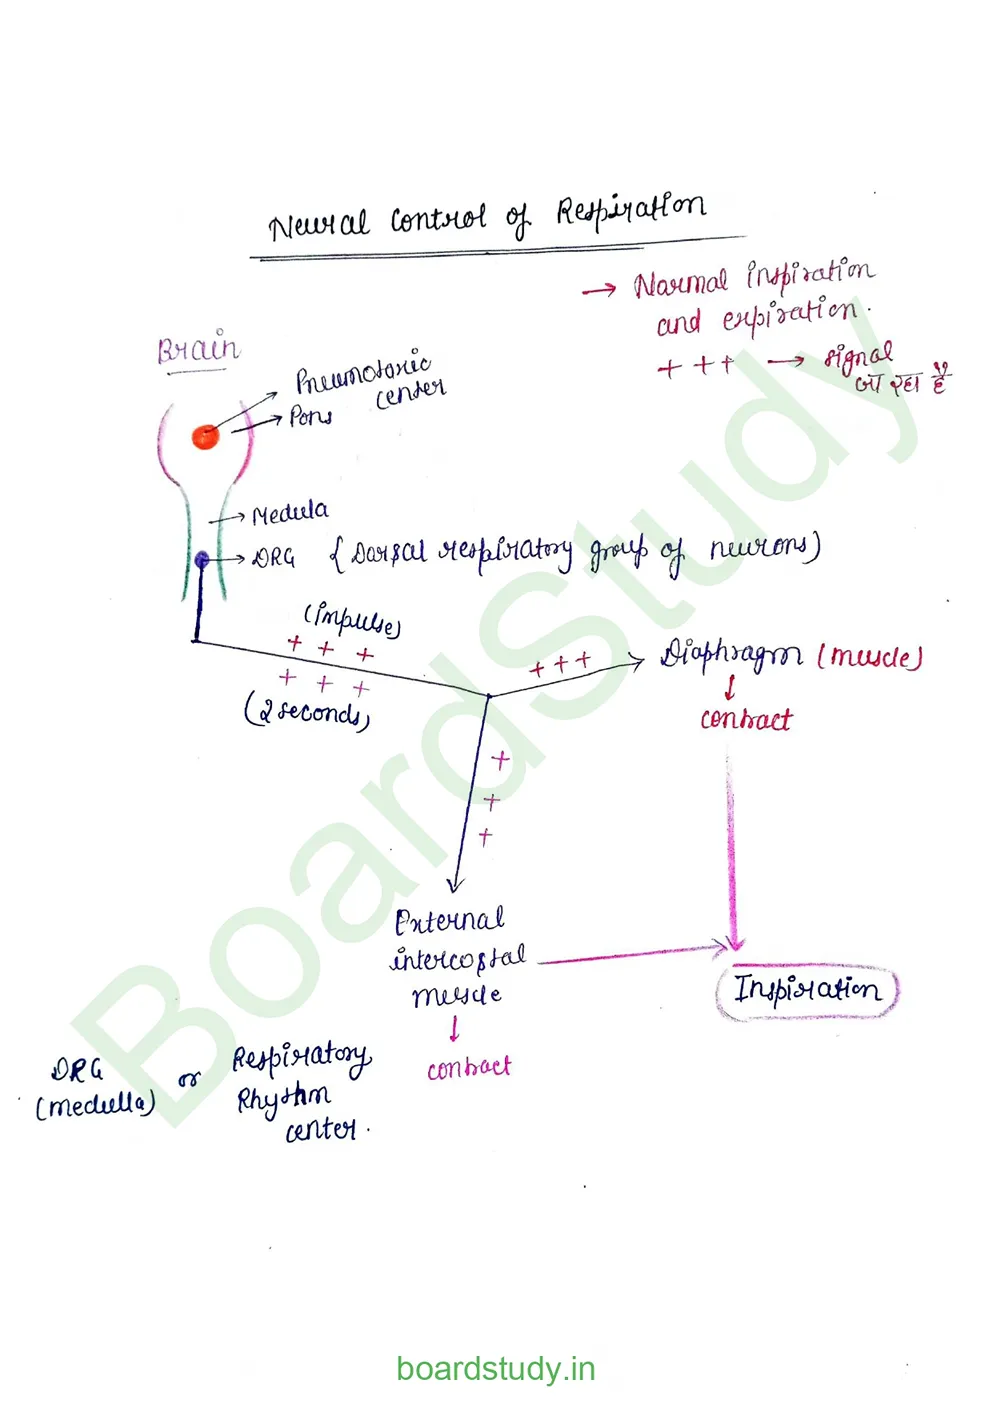 Neural Control of Respiration
→ Normal inspiration
and expiration.
+ + + → signal
जा रहा है
Brain
Pneumotoxic
center
Pons
Medula
DRG { Dorsal respiratory group of neurons)
(impulse)
+ + +
+ + +
(2 seconds)
+ + +
Diaphragm (muscle)
↓
contract
+
+
+
External
intercostal
muscle
↓
contract
Inspiration
DRG
(medulla)
or
Respiratory
Rhythm
center.
BoardStudy
boardstudy.in